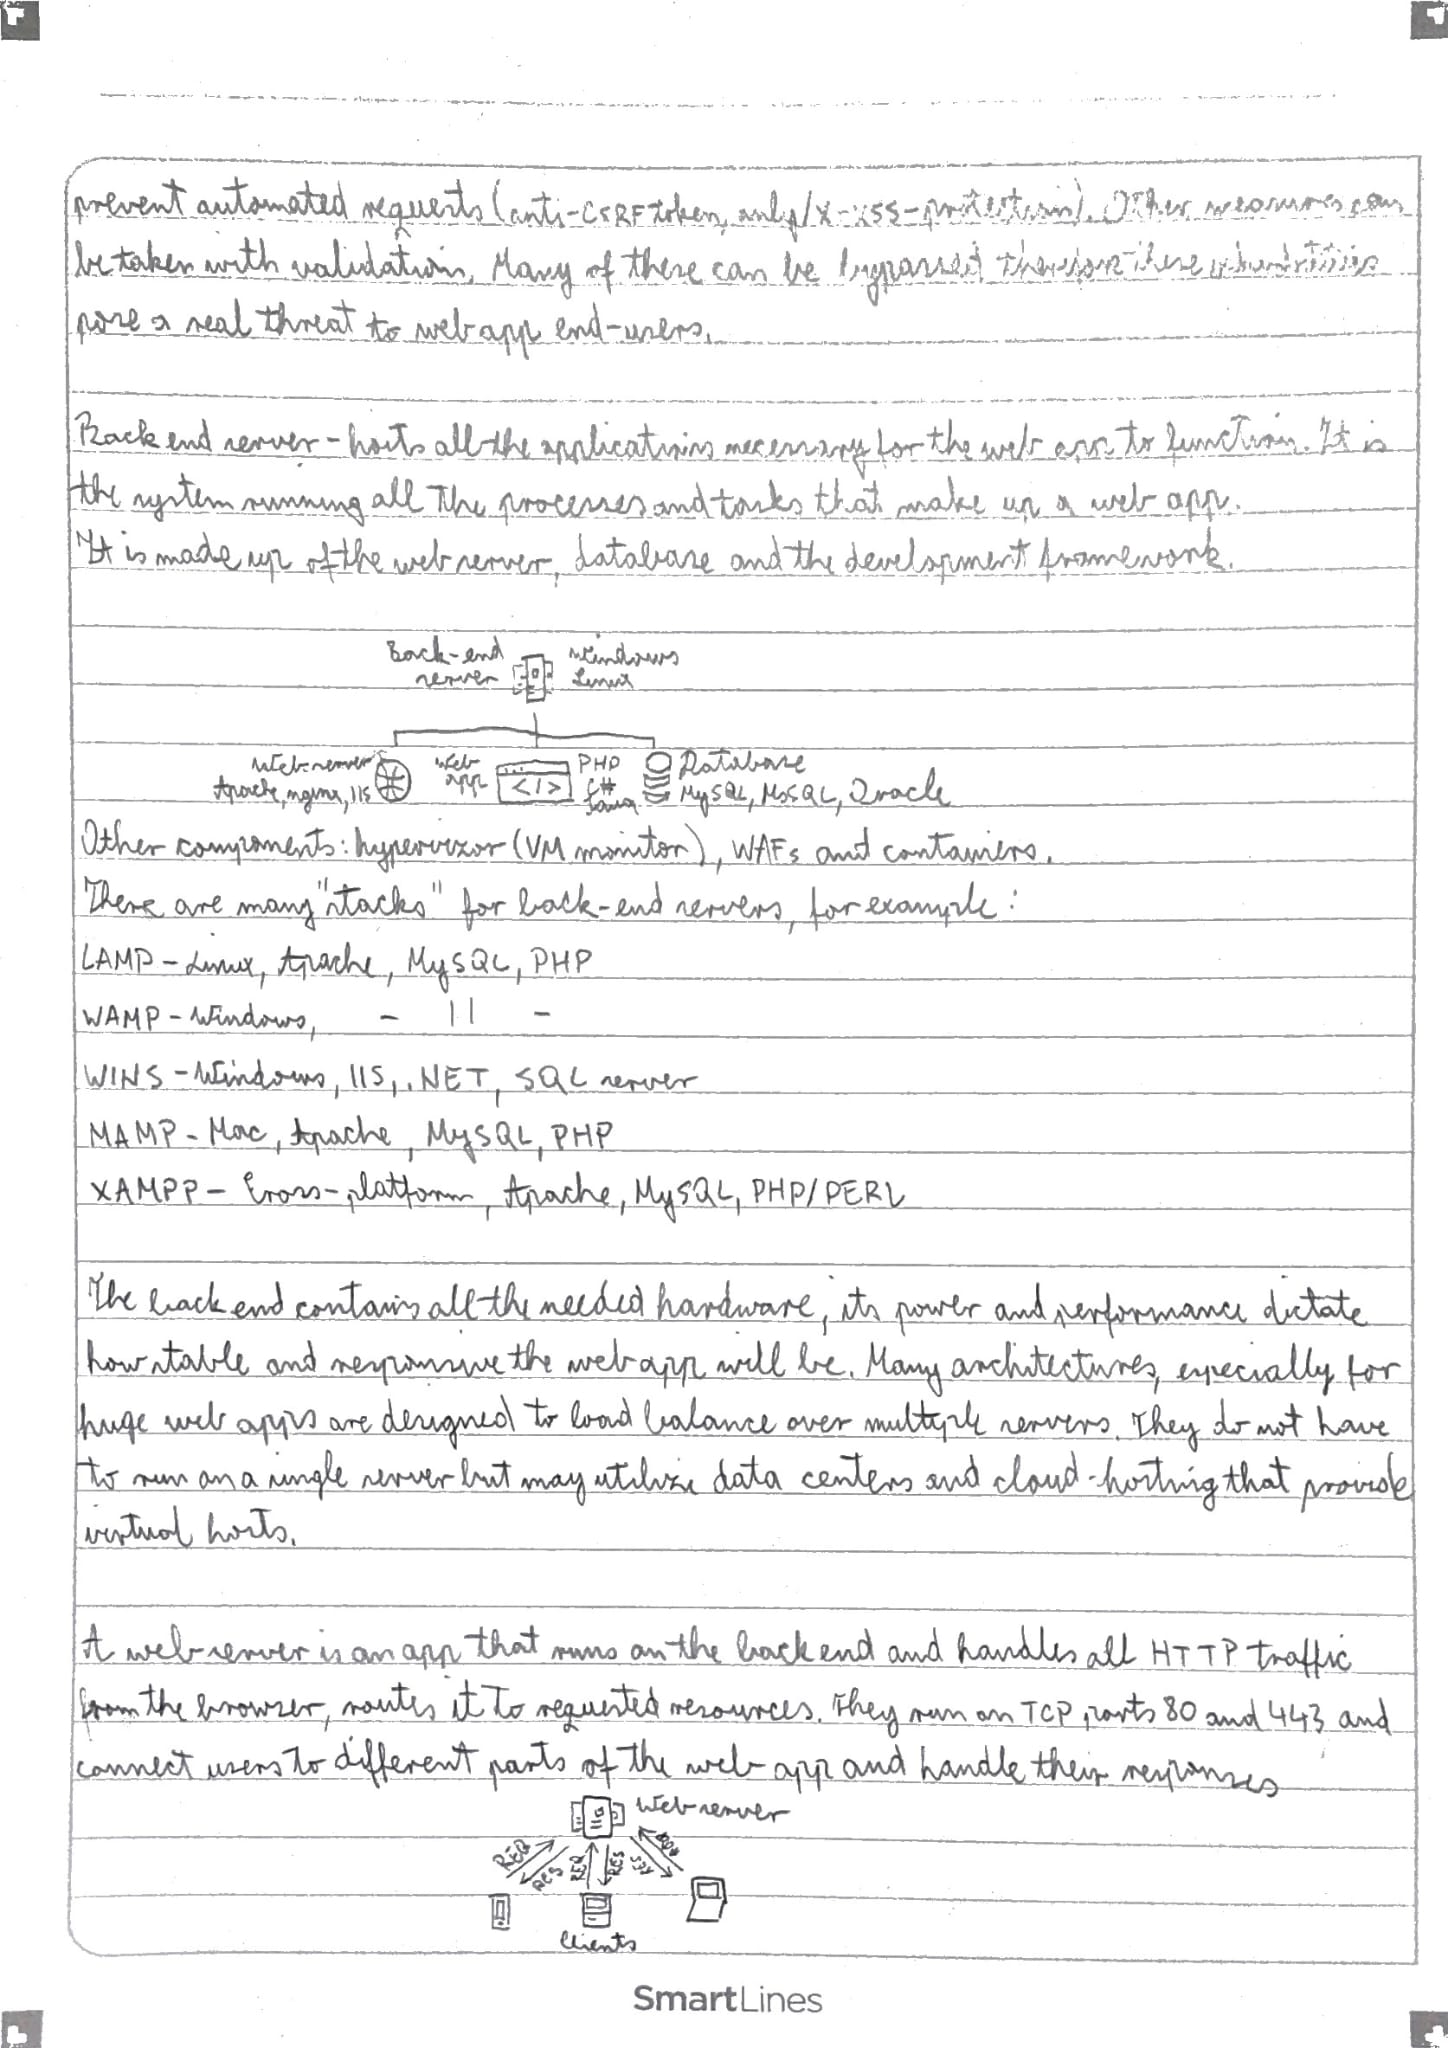 prevent automated requests (anti-CSRF token, only/X-XSS-protection). Other measures can
be taken with validation. Many of these can be bypassed therefore these vulnerabilities
pose a real threat to web app end-users.
Back end server - hosts all the applications necessary for the web app to function. It is
the system running all the processes and tasks that make up a web app.
It is made up of the web server, database and the development framework.
Back-end Windows
server Linux
Web server Web app PHP Database
Apache, nginx, IIS </> C# Java MySQL, MsSQL, Oracle
Other components: hypervizor (VM monitor), WAFs and containers.
There are many "stacks" for back-end servers, for example:
LAMP - Linux, Apache, MySQL, PHP
WAMP - Windows, - || -
WINS - Windows, IIS, .NET, SQL server
MAMP - Mac, Apache, MySQL, PHP
XAMPP - Cross-platform, Apache, MySQL, PHP/PERL
The back end contains all the needed hardware, its power and performance dictate
how stable and responsive the web app will be. Many architectures, especially for
huge web apps are designed to load balance over multiple servers. They do not have
to run on a single server but may utilize data centers and cloud-hosting that provide
virtual hosts.
A web server is an app that runs on the back end and handles all HTTP traffic
from the browser, routes it to requested resources. They run on TCP ports 80 and 443 and
connect users to different parts of the web app and handle their responses
Web server
REQ RES REQ RES RES REQ
Clients
SmartLines